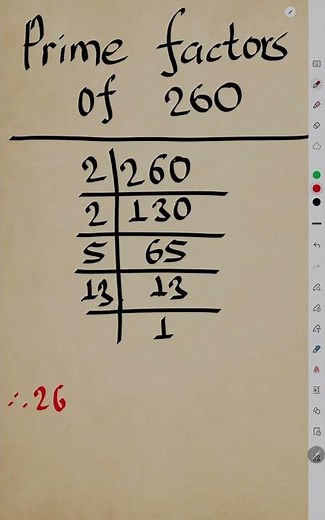 Prime factors
of 260
2 260
2 130
5 65
13 13
1
∴ 26